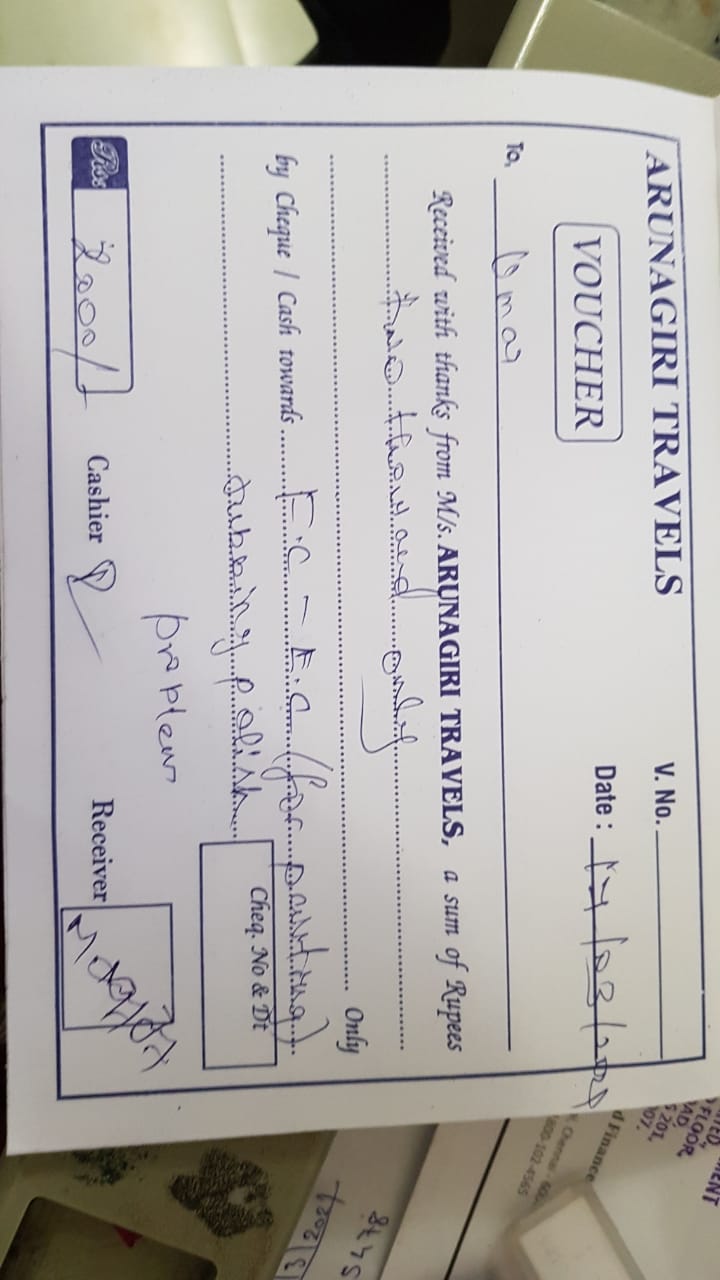 ARUNAGIRI TRAVELS
V. No.
VOUCHER
Date : 14/03/2024
To,
Received with thanks from M/s. ARUNAGIRI TRAVELS, a sum of Rupees
two thousand only
Only
by Cheque / Cash towards E.C - E.C (for painting)
rubbing polish
problem
Cheq. No & Dt
Rs. 2000/-
Cashier
Receiver
d Finance
FLOOR,
3/2024
5478